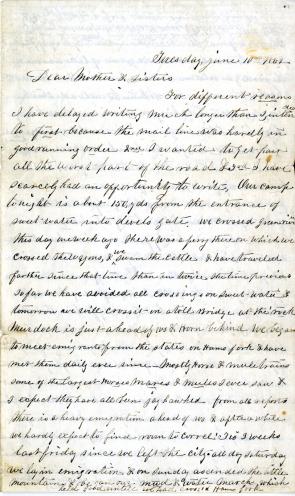 Tuesday, june 10th 186
Dear Mother & Sisters
For different reasons
I have delayed writing much longer than I inten ded
to first because the mail line was hardly in
good running order 2nd I wanted to get past
all the worst part of the road & 3rd I have
scarcely had an opportunity to write. Our camp
tonight is about 150 yds from the entrance of
sweet water into devels gate, we crossed green river
this day one week ago there was a ferry there on which we
crossed the wagons, & we swam the cattle & have traveled
farther since that time than in twice the time previous
So far we have avoided all crossing on Sweet-water &
tomorrow we will cross it on a toll Bridge at the rock
Murdock is just ahead of us & Horn behind we began
to meet emigrants from the states on Hams fork & have
met them daily ever since Mostly horse & mule trains
some of the largest Horses Mares & Mules I ever saw &
I expect they have all been jayhawked from all reports
there is a heavy emigration ahead of us & after a while
we hardly expect to find room to correl! Tis 3 weeks
last friday since we left the City all day Saturday
we lay in emigration & on sunday ascended the little
mountain & by an
mud & water march, which
we had Hams fork